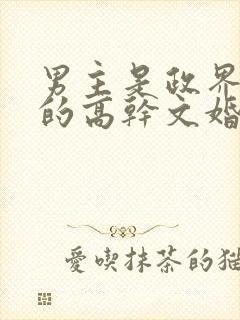 男主是政界
的高幹文婚
愛喫抹茶的貓